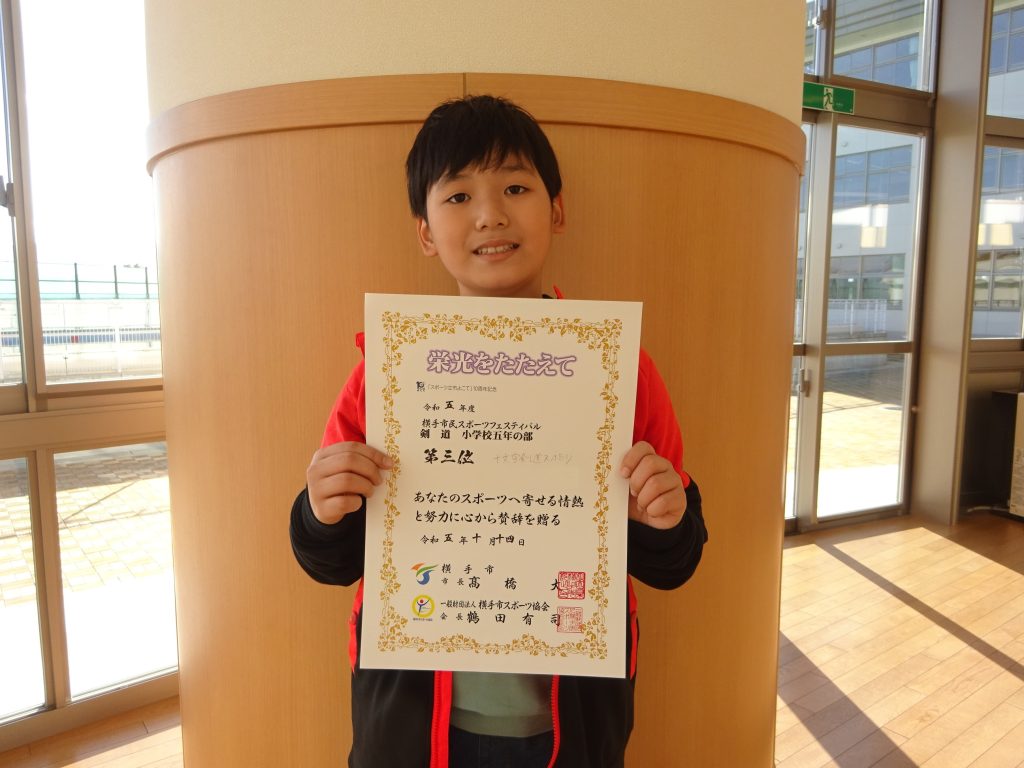 栄光をたたえて
「スポーツ立市よこて」10周年記念
令和五年度
横手市民スポーツフェスティバル
剣道 小学校五年の部
第三位
あなたのスポーツへ寄せる情熱
と努力に心から賛辞を贈る
令和五年十月十四日
横手市
市長 髙橋 大
一般財団法人 横手市スポーツ協会
会長 鶴田有司